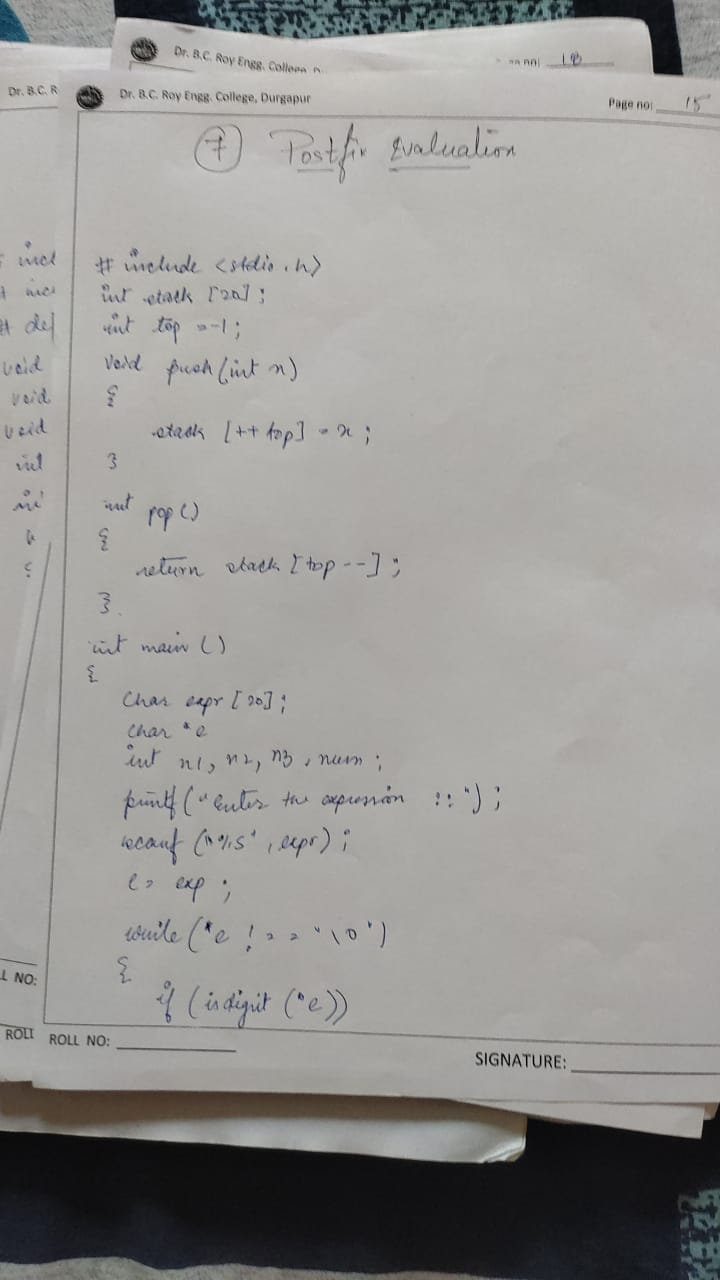 Dr. B.C. Roy Engg. College, D
no: 18
Dr. B.C. R
Dr. B.C. Roy Engg. College, Durgapur
Page no: 15
7 Postfix Evaluation
# include <stdio.h>
int stack [20];
int top = -1;
void push (int x)
{
stack [++ top] = x;
}
int pop ()
{
return stack [top --];
}
int main ()
{
char expr [20];
char *e
int n1, n2, n3, num;
printf ("Enter the expression ::");
scanf ("%s", expr);
e = exp;
while (*e ! = = '\0')
{
if (isdigit (*e))
incl
inc
# def
void
void
void
int
L NO:
ROLL
ROLL NO:
SIGNATURE: